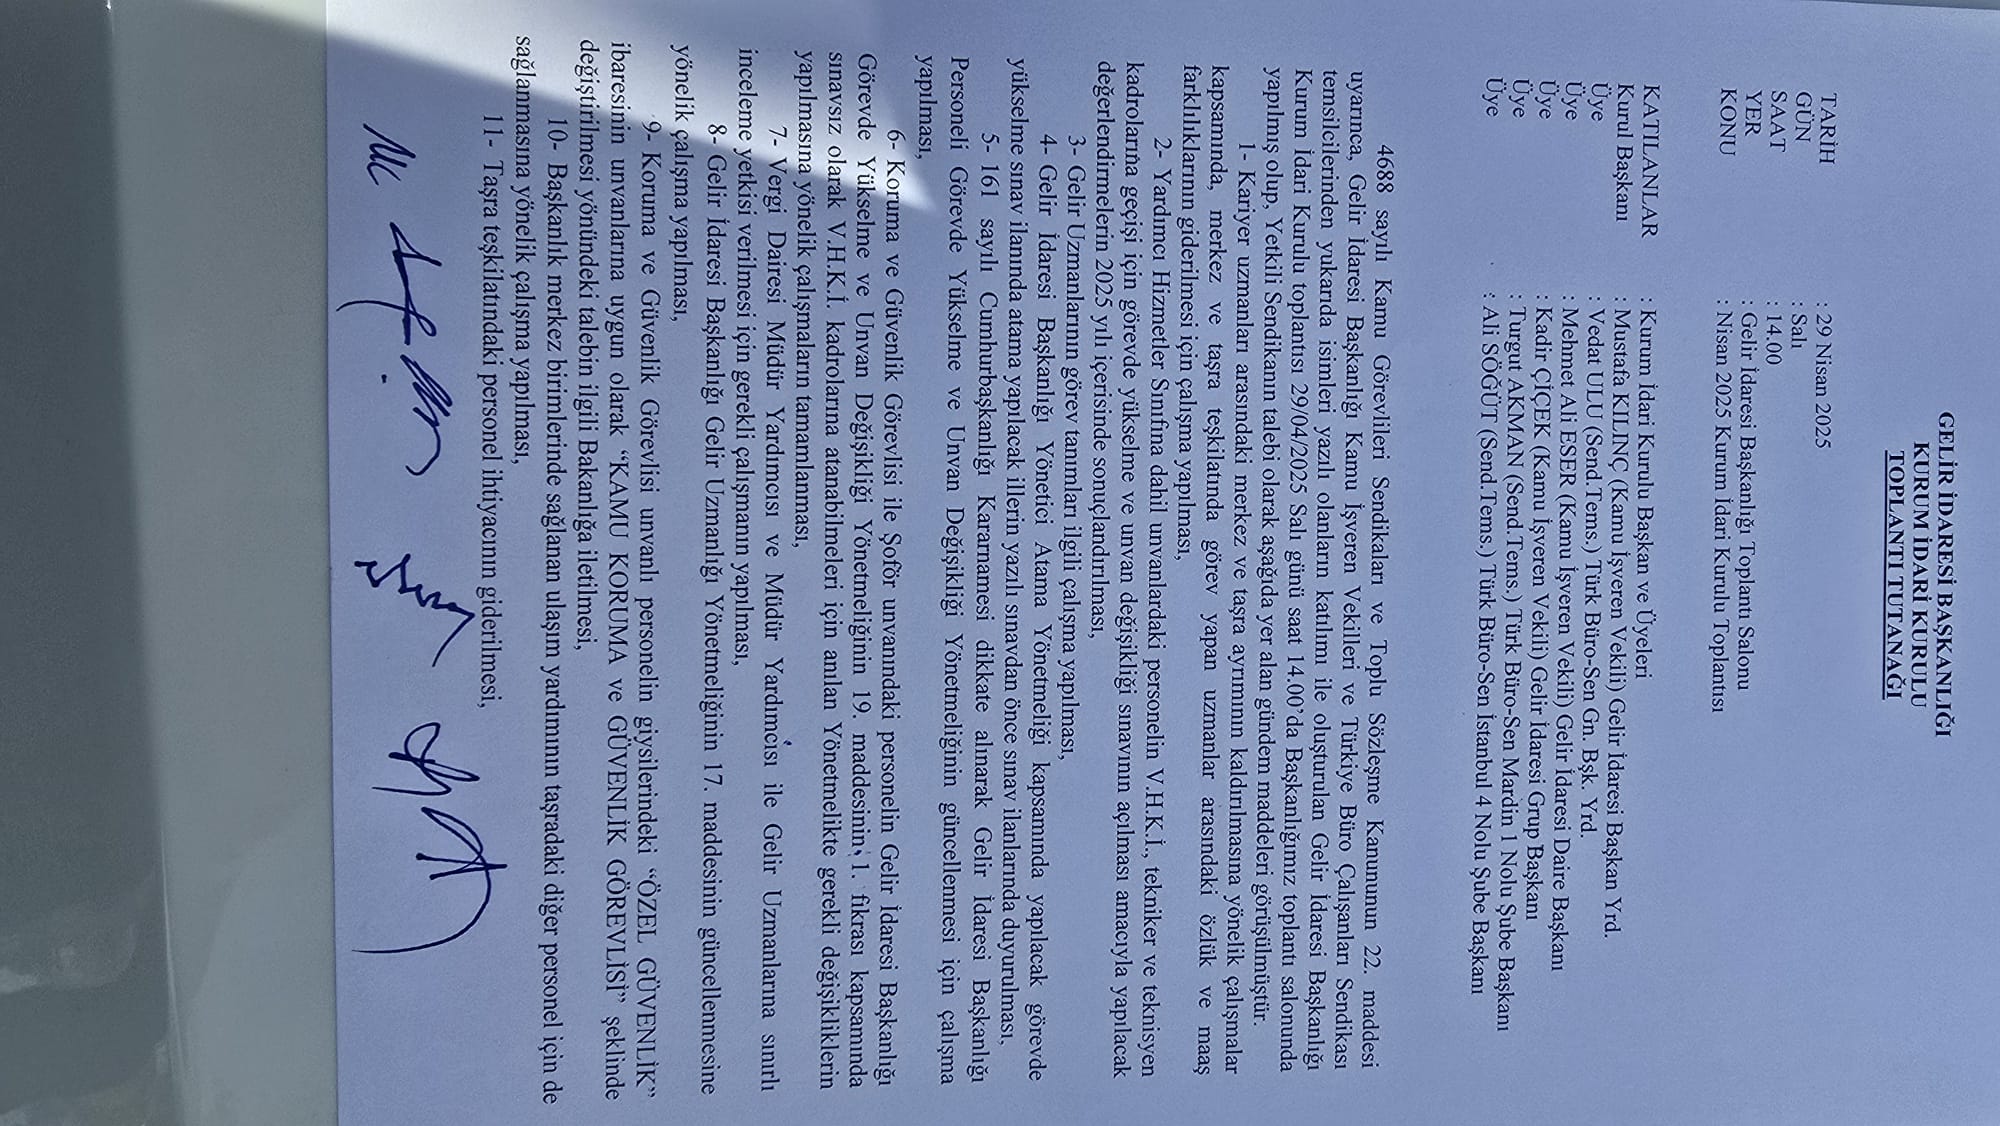 GELİR İDARESİ BAŞKANLIĞI
KURUM İDARİ KURULU
TOPLANTI TUTANAĞI
TARİH : 29 Nisan 2025
GÜN : Salı
SAAT : 14.00
YER : Gelir İdaresi Başkanlığı Toplantı Salonu
KONU : Nisan 2025 Kurum İdari Kurulu Toplantısı
KATILANLAR : Kurum İdari Kurulu Başkan ve Üyeleri
Kurul Başkanı : Mustafa KILINÇ (Kamu İşveren Vekili) Gelir İdaresi Başkan Yrd.
Üye : Vedat ULU (Send.Tems.) Türk Büro-Sen Gn. Bşk. Yrd.
Üye : Mehmet Ali ESER (Kamu İşveren Vekili) Gelir İdaresi Daire Başkanı
Üye : Kadir ÇİÇEK (Kamu İşveren Vekili) Gelir İdaresi Grup Başkanı
Üye : Turgut AKMAN (Send.Tems.) Türk Büro-Sen Mardin 1 Nolu Şube Başkanı
Üye : Ali SÖĞÜT (Send.Tems.) Türk Büro-Sen İstanbul 4 Nolu Şube Başkanı
4688 sayılı Kamu Görevlileri Sendikaları ve Toplu Sözleşme Kanununun 22. maddesi
uyarınca, Gelir İdaresi Başkanlığı Kamu İşveren Vekilleri ve Türkiye Büro Çalışanları Sendikası
temsilcilerinden yukarıda isimleri yazılı olanların katılımı ile oluşturulan Gelir İdaresi Başkanlığı
Kurum İdari Kurulu toplantısı 29/04/2025 Salı günü saat 14.00'da Başkanlığımız toplantı salonunda
yapılmış olup, Yetkili Sendikanın talebi olarak aşağıda yer alan gündem maddeleri görüşülmüştür.
1- Kariyer uzmanları arasındaki merkez ve taşra ayrımının kaldırılmasına yönelik çalışmalar
kapsamında, merkez ve taşra teşkilatında görev yapan uzmanlar arasındaki özlük ve maaş
farklılıklarının giderilmesi için çalışma yapılması,
2- Yardımcı Hizmetler Sınıfına dahil unvanlardaki personelin V.H.K.İ., tekniker ve teknisyen
kadrolarına geçişi için görevde yükselme ve unvan değişikliği sınavının açılması amacıyla yapılacak
değerlendirmelerin 2025 yılı içerisinde sonuçlandırılması,
3- Gelir Uzmanlarının görev tanımları ilgili çalışma yapılması,
4- Gelir İdaresi Başkanlığı Yönetici Atama Yönetmeliği kapsamında yapılacak görevde
yükselme sınav ilanında atama yapılacak illerin yazılı sınavdan önce sınav ilanlarında duyurulması,
5- 161 sayılı Cumhurbaşkanlığı Kararnamesi dikkate alınarak Gelir İdaresi Başkanlığı
Personeli Görevde Yükselme ve Unvan Değişikliği Yönetmeliğinin güncellenmesi için çalışma
yapılması,
6- Koruma ve Güvenlik Görevlisi ile Şoför unvanındaki personelin Gelir İdaresi Başkanlığı
Görevde Yükselme ve Unvan Değişikliği Yönetmeliğinin 19. maddesinin 1. fıkrası kapsamında
sınavsız olarak V.H.K.İ. kadrolarına atanabilmeleri için anılan Yönetmelikte gerekli değişikliklerin
yapılmasına yönelik çalışmaların tamamlanması,
7- Vergi Dairesi Müdür Yardımcısı ve Müdür Yardımcısı ile Gelir Uzmanlarına sınırlı
inceleme yetkisi verilmesi için gerekli çalışmanın yapılması,
8- Gelir İdaresi Başkanlığı Gelir Uzmanlığı Yönetmeliğinin 17. maddesinin güncellenmesine
yönelik çalışma yapılması,
9- Koruma ve Güvenlik Görevlisi unvanlı personelin giysilerindeki “ÖZEL GÜVENLİK”
ibaresinin unvanlarına uygun olarak “KAMU KORUMA ve GÜVENLİK GÖREVLİSİ” şeklinde
değiştirilmesi yönündeki talebin ilgili Bakanlığa iletilmesi,
10- Başkanlık merkez birimlerinde sağlanan ulaşım yardımının taşradaki diğer personel için de
sağlanmasına yönelik çalışma yapılması,
11- Taşra teşkilatındaki personel ihtiyacının giderilmesi,